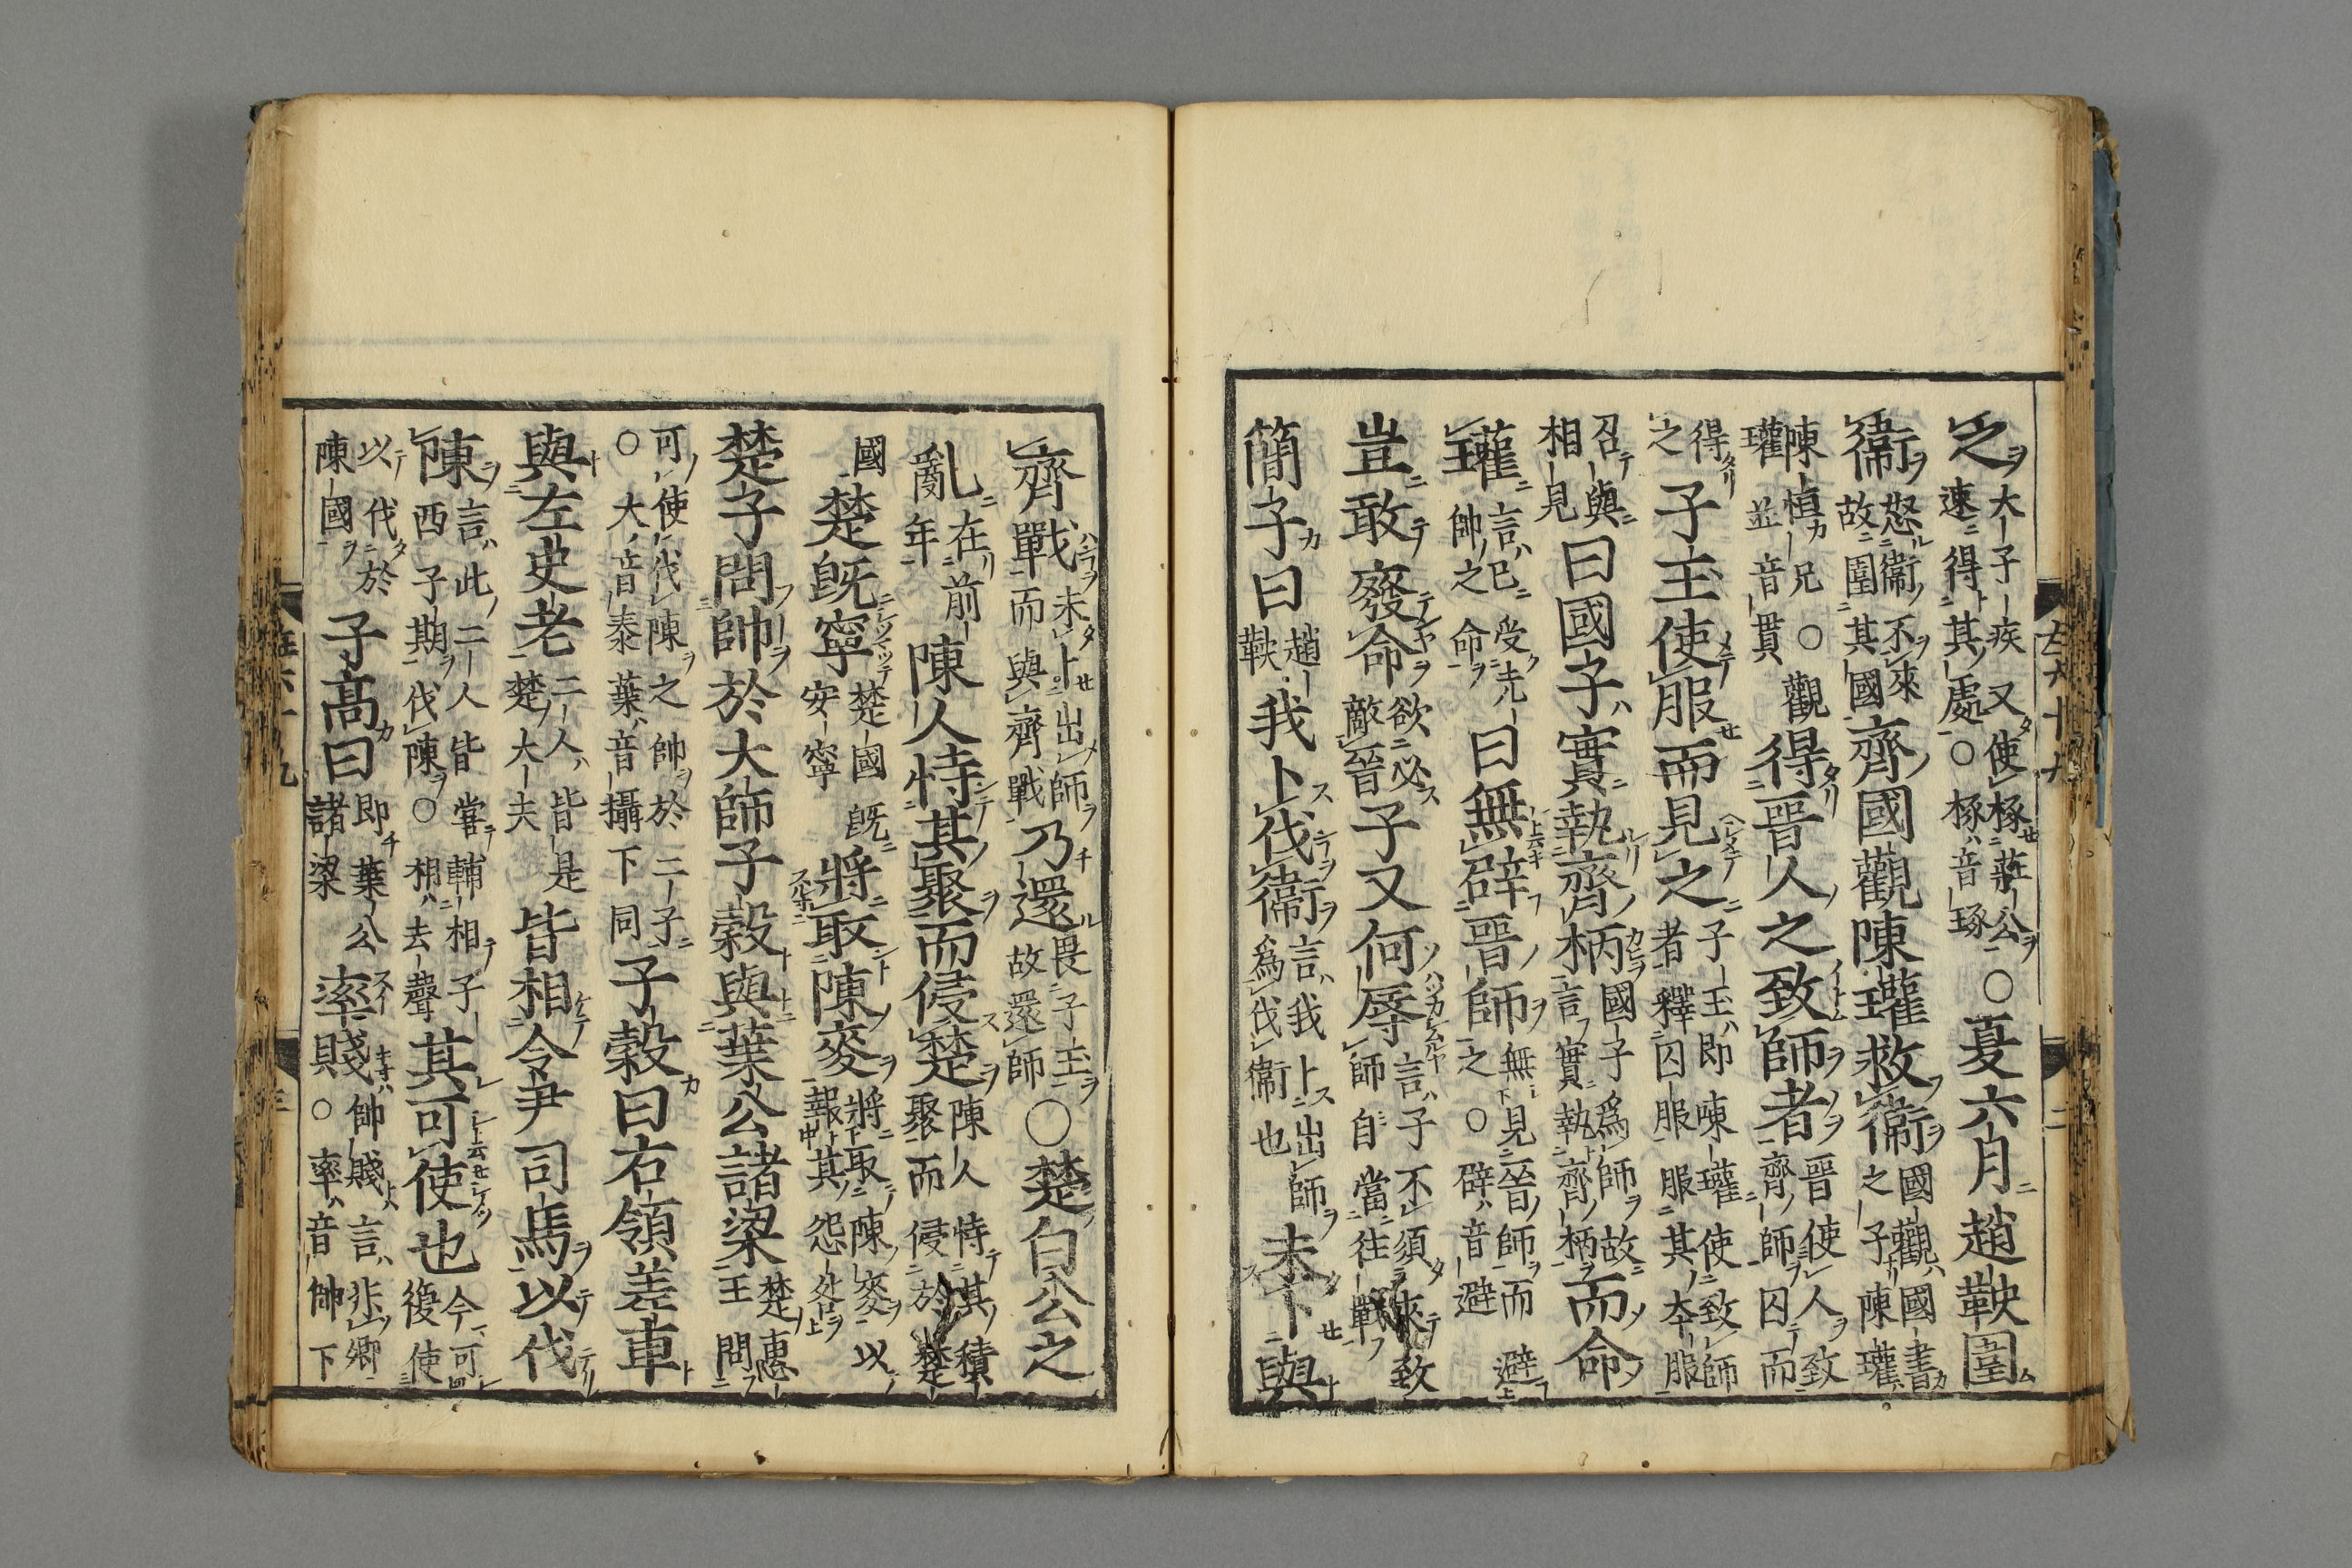 之大子疾又使椓莊公速得其處○椓音琢○夏六月趙鞅圍
衞怒衞不來故圍其國齊國觀陳瓘救衞國觀國書之子陳瓘
陳恒兄○觀瓘並音貫得晉人之致師者晉使人致齊師囚而
得之子玉使服而見之子玉即陳瓘使致師者釋囚服服其本服
召與相見曰國子實執齊柄國子爲師故言實執齊柄而命
瓘言已受先帥之命曰無辟晉師無見晉師而避之○辟音避
豈敢廢命欲必敵晉子又何辱言子不須來致師自當往戰
簡子曰趙鞅我卜伐衞言我卜出師爲伐衞也未卜與
齊戰未卜出師而與齊戰乃還畏子玉故還師○楚白公之
亂在前年陳人恃其聚而侵楚陳人恃其積聚而侵於楚
國楚旣寧楚國旣安寧將取陳麥將取陳麥以報其怨
楚子問帥於大師子穀與葉公諸梁楚惠王問
可使伐陳之帥於二子○大音泰葉音攝下同子穀曰右領差車
與左史老二人皆是楚大夫皆相令尹司馬以伐
陳言此二人皆嘗輔相子西子期伐陳○相去聲其可使也今可復使
以伐於陳國子高曰即葉公諸梁率賤帥賤言非卿○率音帥下